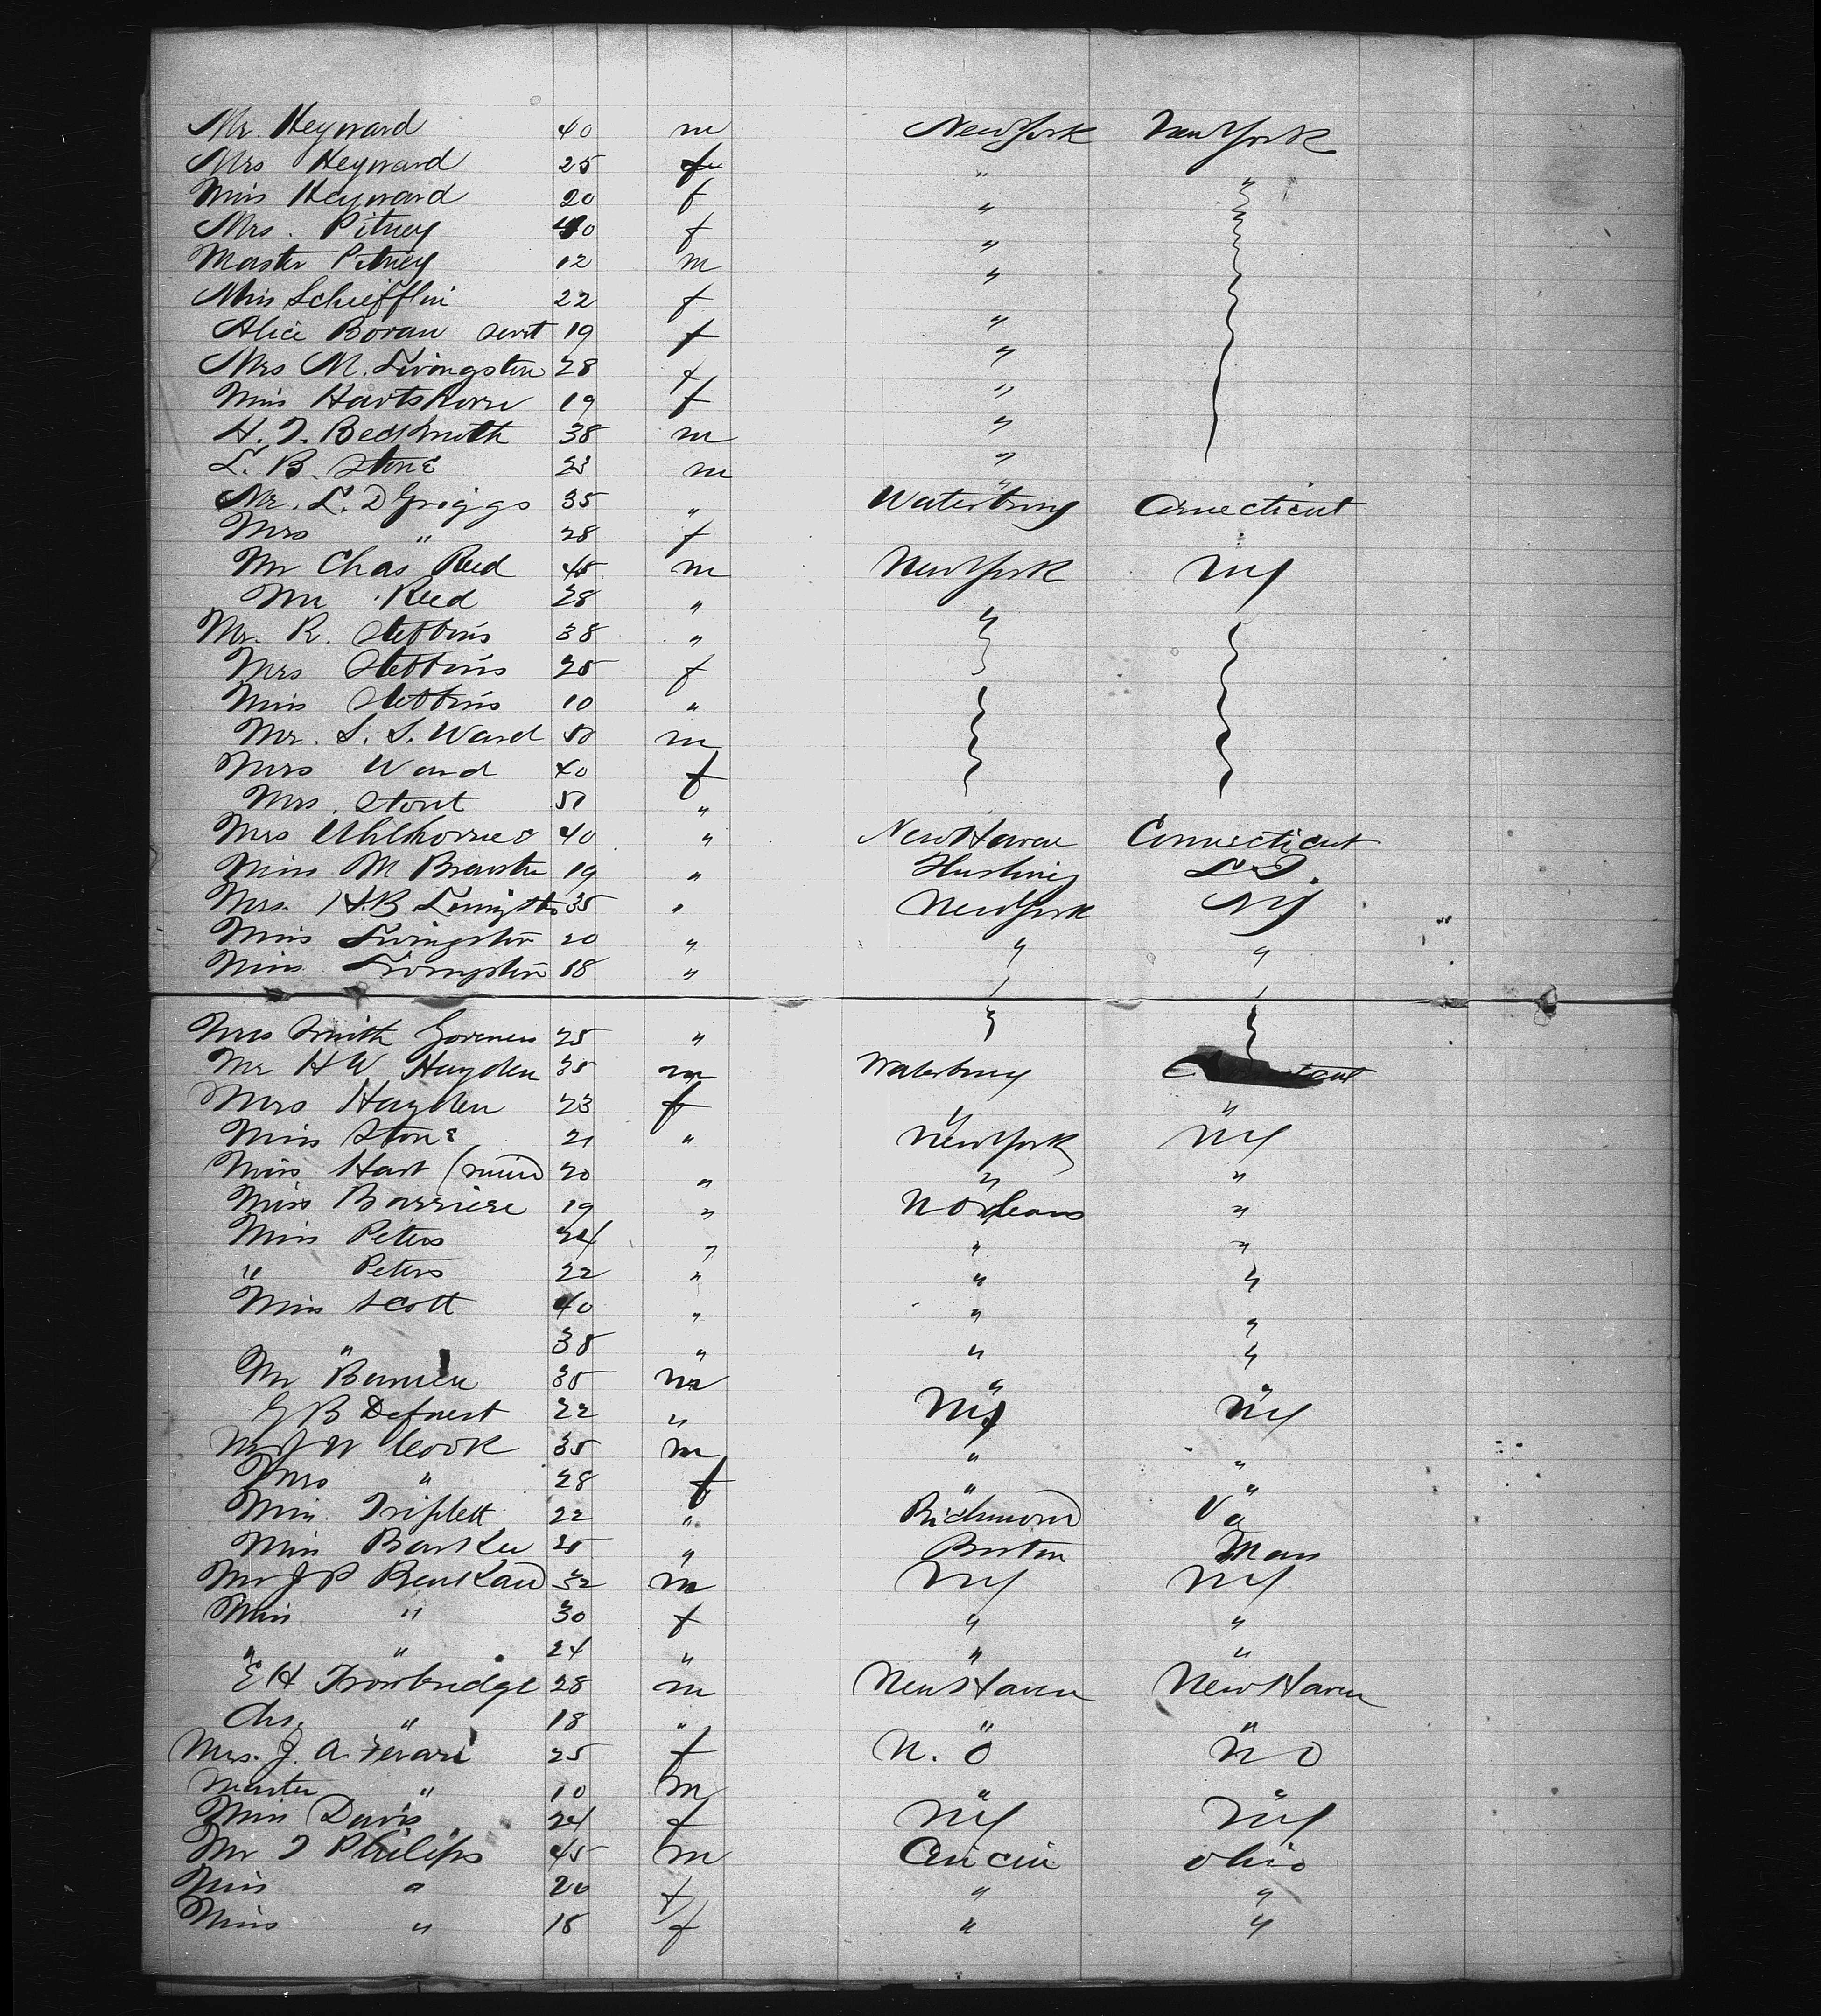 Mr. Heyward 40 m New York New York
Mrs Heyward 25 f "
Miss Heyward 20 f " "
Mrs. Pitney 40 f "
Master Pitney 12 m "
Miss Schiefflin 22 f
Alice Boran servt 19 f "
Mrs M. Livingston 28 f "
Miss Hartshorne 19 f "
H. T. Beckwith 38 m "
L. B. Stone 23 m "
Mr. L. D Griggs 35 " Waterbury Connecticut
Mrs " 28 f "
Mr Chas Reed 45 m New York NY
Mr Reed 28 " "
Mr. R. Stebbins 38 "
Mrs Stebbins 25 f
Miss Stebbins 10 "
Mr. S. S. Ward 50 m
Mrs Ward 40 f
Mrs. Stout 50 "
Mrs Uhlhorne 40 " New Haven Connecticut
Miss M 19 " Flushing L I.
Mrs. H.B Livingston 35 " New York NY
Miss Livingston 20 " " "
Miss Livingston 18 "
Mrs Smith Governess 25 "
Mr H W Hayden 35 m Waterbury
Mrs Hayden 23 f " "
Miss Stone 21 " New York NY
Miss Hart (maid 20 " " "
Miss Barriere 19 " N Orleans "
Miss Peters 24 " " "
" Peters 22 " " "
Miss Scott 40 " " "
" 38 " " "
Mr 35 m "
G B Deforest 22 " NY NY
Mr J W Cook 35 m " "
Mrs " 28 f " "
Miss Triplett 22 " Richmond Va
Miss Barker 25 " Boston Mass
Mr J P 32 m NY NY
Miss " 30 f " "
" " 24 " " "
E H Trowbridge 28 m New Haven New Haven
Chs. " 18 " " "
Mrs. J. A. 25 f N. O N O
Master " 10 m " "
Miss Davis 24 f NY NY
Mr T Philips 45 m Cincin Ohio
Miss " 20 f " "
Miss " 18 f " "